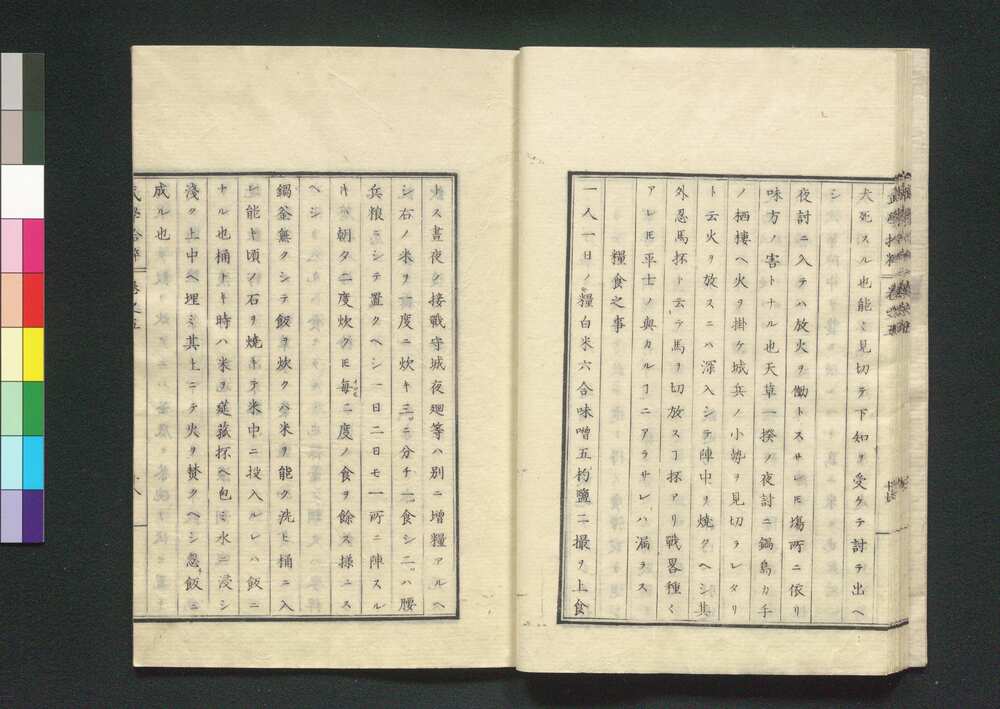 犬死スル也能ミ見切テ下知ヲ受ケテ討テ出ヘ
シ
夜討ニ入テハ放火ヲ働トスサレ𪜈塲所ニ依リ
味方ノ害トナル也天草一揆ノ夜討ニ鍋島カ手
ノ栖樓ヘ火ヲ掛ケ城兵ノ小勢ヲ見切ラレタリ
ト云火ヲ放スニハ深入シテ陣中ヲ燒クヘシ其
外忍馬抔ト云テ馬ヲ切放スヿ抔アリ戰畧種〻
アレ𪜈平士ノ與カルヿニアラサレハ漏ラス
糧食之事
一人一日ノ糧白米六合味噌五杓鹽二撮ヲ上食
トス晝夜ノ接戰守城夜廻等ハ別ニ增糧アルヘ
シ右ノ米ヲ一度ニ炊キ三ニ分チ一食シ二ハ腰
兵粮ニシテ置クヘシ一日二日モ一所ニ陣スル
キハ朝夕二度炊ク𪜈每ニ二度ノ食ヲ餘ス樣ニス
ヘシ
鍋釜無クシテ飯ヲ炊クハ米ヲ能ク洗ヒ桶ニ入
レ能キ頃ノ石ヲ燒キテ米中ニ投入ルレハ飯ニ
ナル也桶ナキ時ハ米ヲ莚菰抔ヘ包ミ水ニ浸シ
淺ク土中ヘ埋ミ其上ニテ火ヲ焚クヘシ忽飯ニ
成ル也